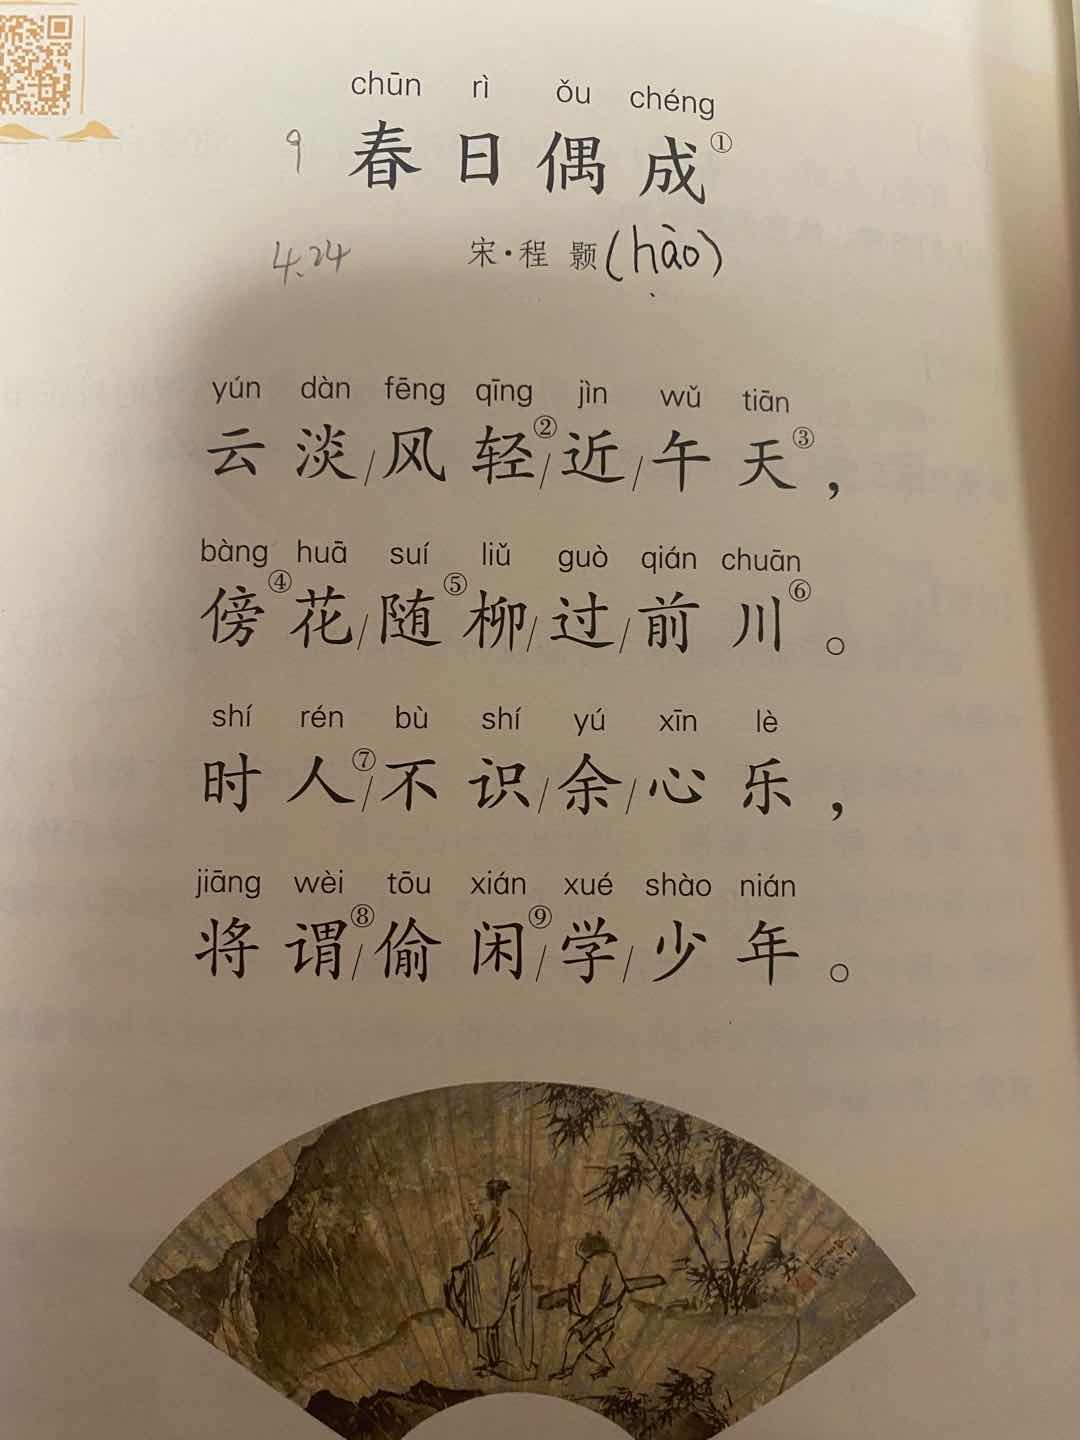 chūn rì ǒu chéng
9 春日偶成①
4.24 宋·程颢(hào)
yún dàn fēng qīng jìn wǔ tiān
云淡/风轻②/近/午天③，
bàng huā suí liǔ guò qián chuān
傍④花/随⑤柳/过/前川⑥。
shí rén bù shí yú xīn lè
时人⑦/不识/余/心乐，
jiāng wèi tōu xián xué shào nián
将谓⑧/偷闲⑨/学/少年。